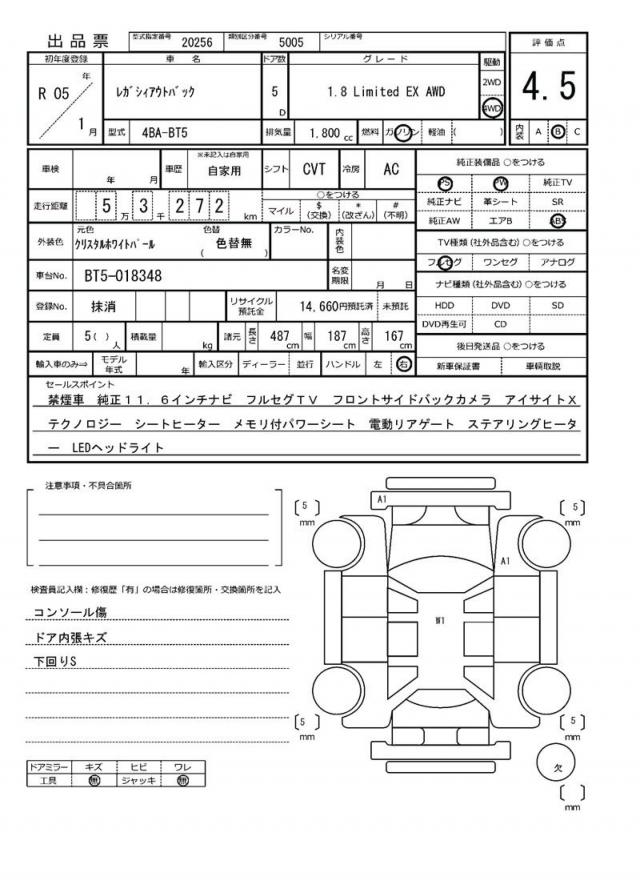 出品票 型式指定番号 20256 類別区分番号 5005 シリアル番号
初年度登録 車名 ドア数 グレード 駆動 評価点
R 05 年 1 月 ﾚｶﾞｼｨｱｳﾄﾊﾞｯｸ 5 D 1.8 Limited EX AWD 2WD 4WD 4.5
型式 4BA-BT5 排気量 1.800 cc 燃料 ガソリン 軽油 ( ) 内装 A B C
車検 年 月 車歴 ※未記入は自家用 自家用 シフト CVT 冷房 AC 純正装備品 ○をつける
PS PW 純正TV
走行距離 5 万 3 千 2 7 2 km ○をつける 純正ナビ 革シート SR
マイル $ (交換) * (改ざん) # (不明) 純正AW エアB ABS
外装色 元色 ｸﾘｽﾀﾙﾎﾜｲﾄﾊﾟｰﾙ 色替 ( 色替無 ) カラーNo. 内装色 TV種類(社外品含む) ○をつける
フルセグ ワンセグ アナログ
車台No. BT5-018348 名変期限 月 日 ナビ種類(社外品含む) ○をつける
登録No. 抹消 リサイクル預託金 14,660円預託済 未預託 HDD DVD SD
DVD再生可 CD
定員 5( ) 人 積載量 kg 諸元 長さ 487 cm 幅 187 cm 高さ 167 cm 後日発送品 ○をつける
輸入車のみ⇒ モデル年式 年 輸入区分 ディーラー 並行 ハンドル 左 右 新車保証書 車輌取説
セールスポイント
禁煙車 純正11．6インチナビ フルセグTV フロントサイドバックカメラ アイサイトX
テクノロジー シートヒーター メモリ付パワーシート 電動リアゲート ステアリングヒータ
ー LEDヘッドライト
注意事項・不具合箇所
検査員記入欄：修復歴「有」の場合は修復箇所・交換箇所を記入
コンソール傷
ドア内張キズ
下回りS
ドアミラー キズ ヒビ ワレ
工具 無 ジャッキ 無
[ 5 ] mm A1 [ 5 ] mm
A1
W1
[ 5 ] mm [ 5 ] mm
欠
[ ] mm